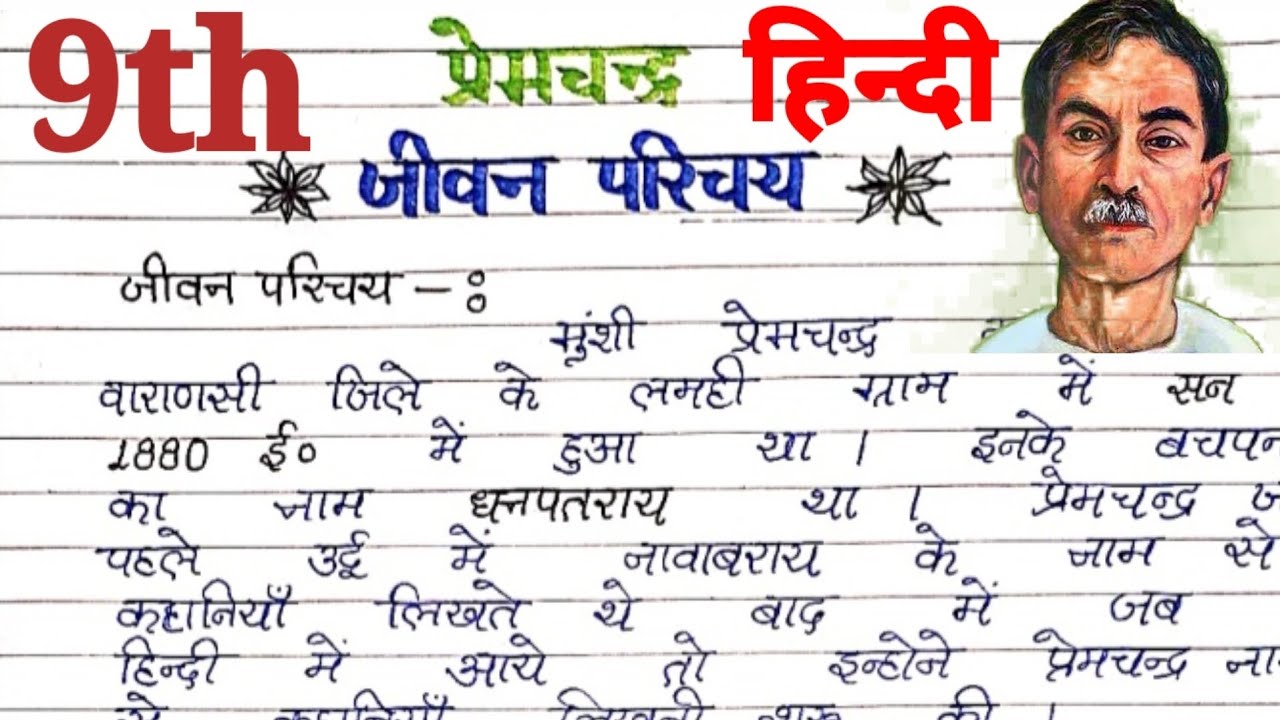 9th
प्रेमचन्द्र हिन्दी
जीवन परिचय
जीवन परिचय -:
मुंशी प्रेमचन्द्र
वाराणसी जिले के लमही ग्राम में सन
1880 ई० में हुआ था । इनके बचपन
का नाम धनपतराय था । प्रेमचन्द्र
पहले उर्दू में नावाबराय के नाम से
कहानियाँ लिखते थे बाद में जब
हिन्दी में आये तो इन्होने प्रेमचन्द्र
से कहानियाँ लिखनी शुरू की ।